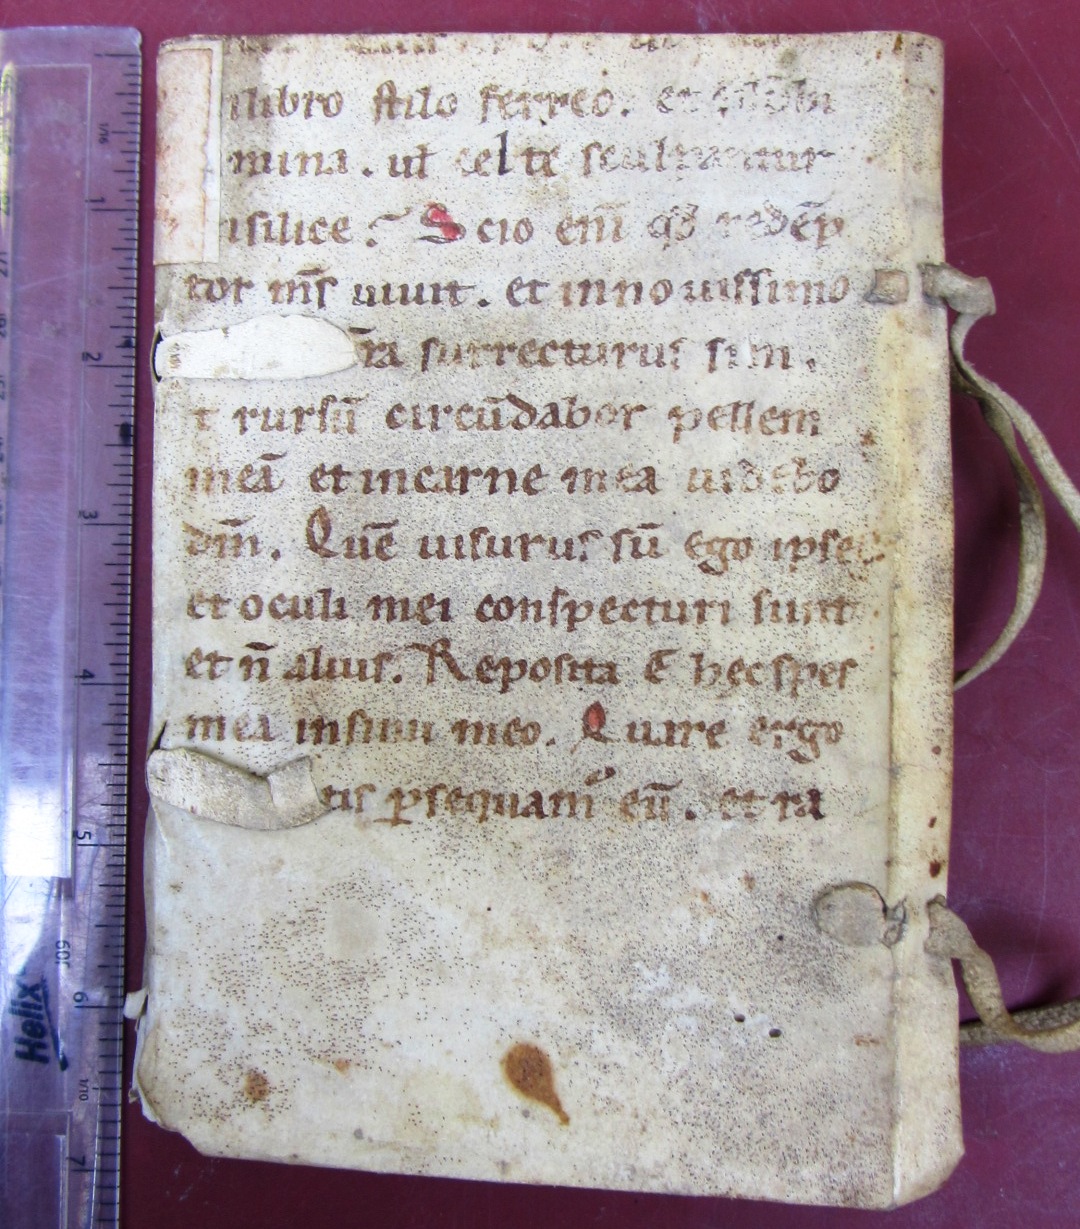 libro ſtilo ferreo. et
mina. ut celte sculpantur
inſilice? Scio eni͞ q̄d redēp
tor m̄s uiuit. et in nouiſſimo
r̄ra surrecturuſ sum.
t rurſū circūdabor pellem
meā et in carne mea uidebo
dm̄. Quē uiſuruſ ſū ego ipse
et oculi mei conſpecturi ſunt.
et n̄ aliuſ. Repoſita ē hęc ſpeſ
mea in ſinu meo. Quare ergo
tiſ ꝑsequamʼ eū. et ra
Helix
1
2
3
4
5
6
7
1/16
1/10